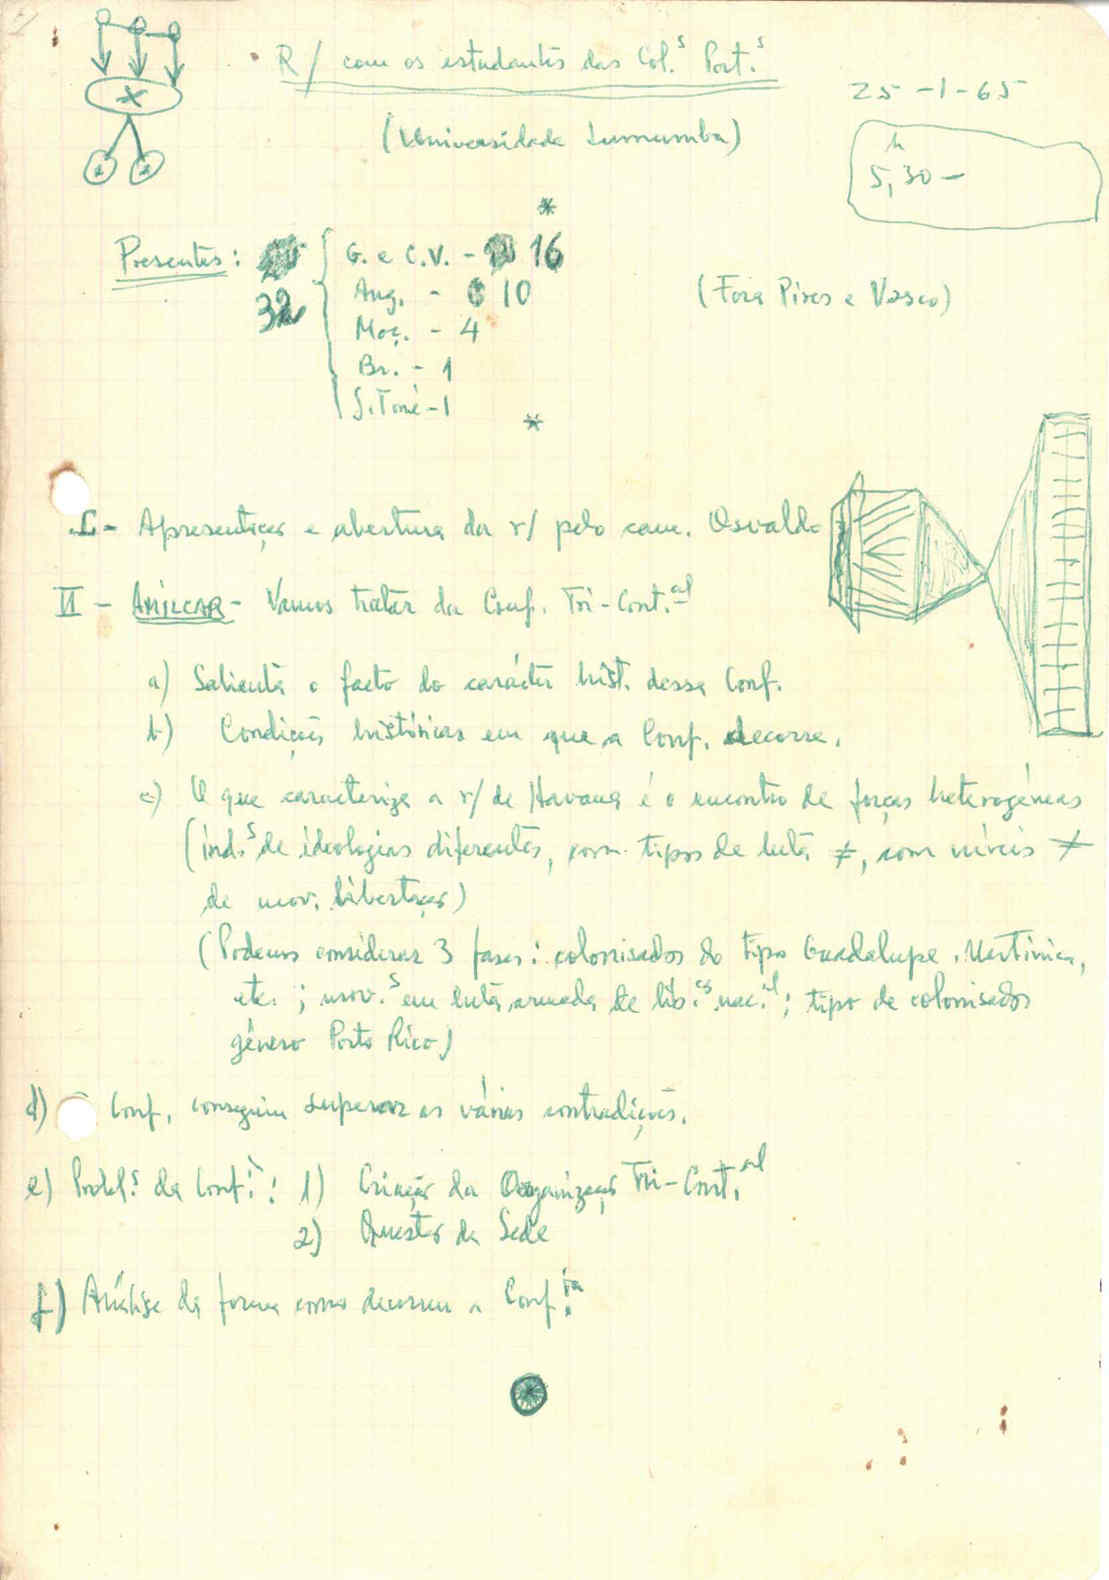 R/ com os estudantes das Col.s Port.s
25-1-65
(Universidade Lumumba)
5,30h –
*
Presentes: 32
G. e C.V. - 16
Ang. - 10
Moç. - 4
Br. - 1
S. Tomé - 1
(Fora Pires e Vasco)
*
I - Apresentação e abertura da r/ pelo cam. Osvaldo
II - AMILCAR - Vamos tratar da Conf. Tri-Cont.al
a) Salienta o facto do carácter hist. dessa Conf.
b) Condições históricas em que a Conf. decorre.
c) O que caracteriza a r/ de Havana é o encontro de forças heterogéneas
(ind.s de ideologias diferentes, com tipos de luta ≠, com níveis ≠
de mov. libertação)
(Podemos considerar 3 fases: colonisados do tipo Guadalupe, Martinica,
etc.; mov.s em luta armada de lib.ção nac.al; tipo de colonisados
género Porto Rico)
d) Conf. conseguiu superar as várias contradições.
e) Probl.s da Conf.: 1) Criação da Organização Tri-Cont.al
2) Questão da Sede
f) Análise da forma como decorreu a Conf.ia